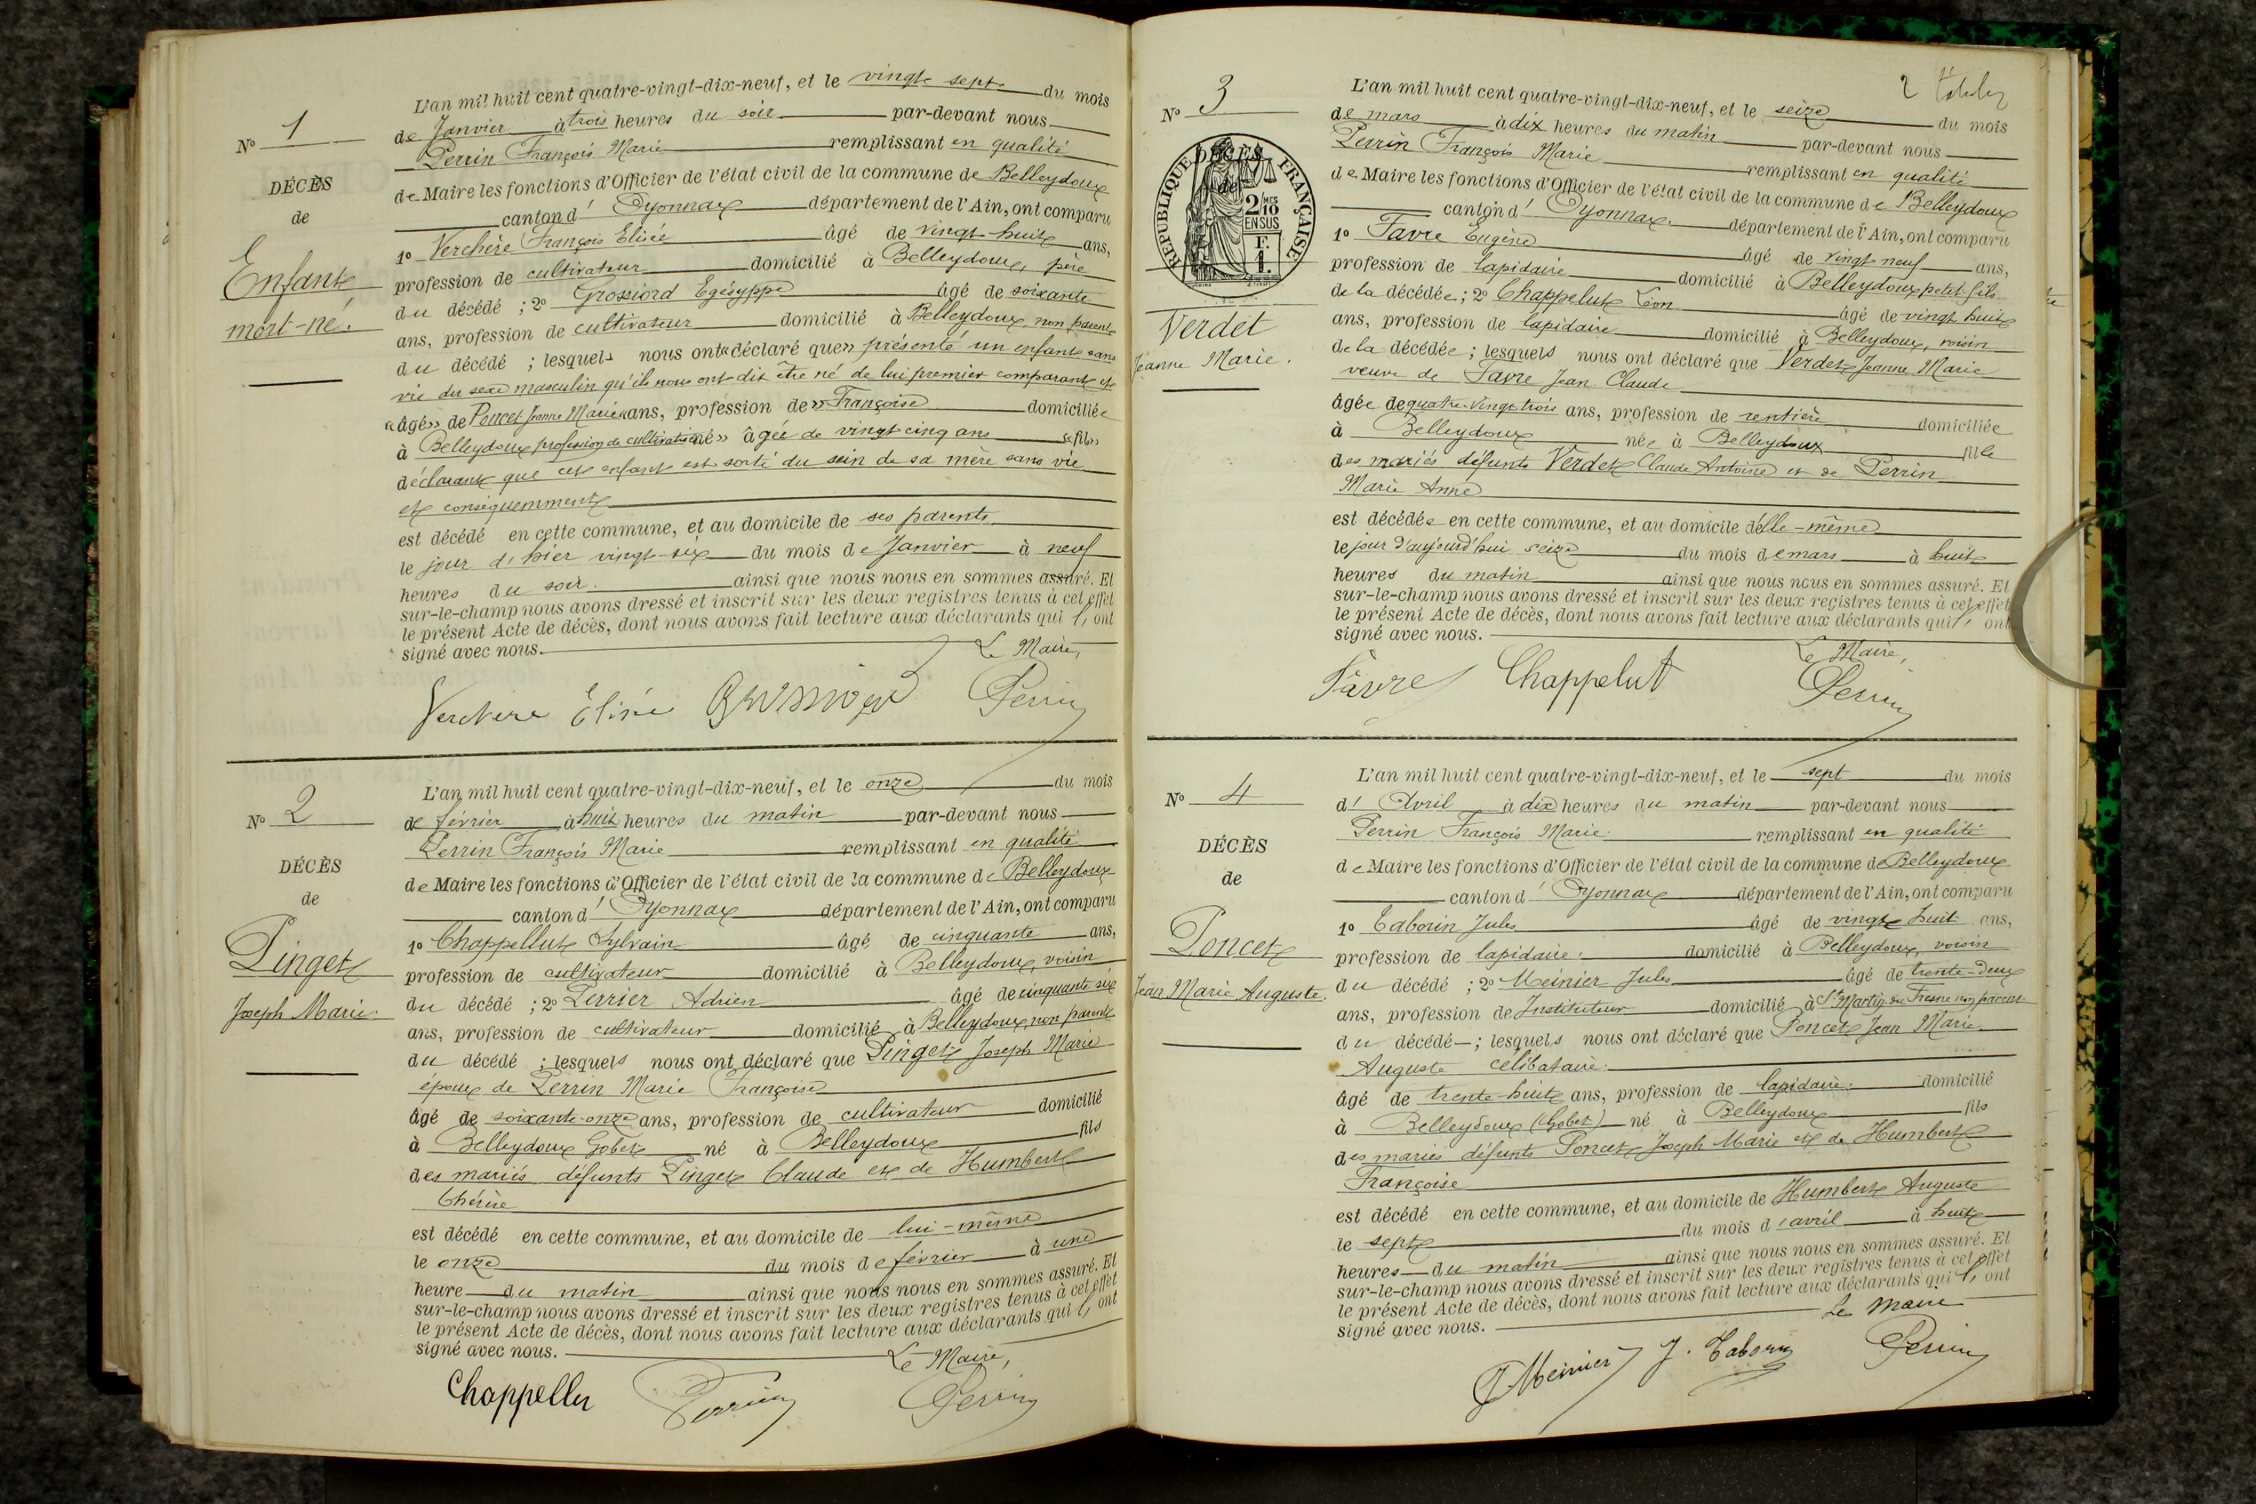 N° 1
DÉCÈS
de
Enfant
mort-né.
L'an mil huit cent quatre-vingt-dix-neuf, et le vingt sept du mois
de Janvier à trois heures du soir par-devant nous
Perrin François Marie remplissant en qualité
de Maire les fonctions d'Officier de l'état civil de la commune de Belleydoux
canton d' Oyonnax département de l'Ain, ont comparu
1° Verchère François Elisée âgé de vingt-huit ans,
profession de cultivateur domicilié à Belleydoux, père
du décédé ; 2° Grossiord Egésyppe âgé de soixante
ans, profession de cultivateur domicilié à Belleydoux, non parent
du décédé ; lesquels nous ont «déclaré que» présenté un enfant sans
vie du sexe masculin qu'ils nous ont dit être né de lui premier comparant et
«âgé» de Poncet Jeanne Marie «ans, profession de» Françoise domiciliée
à Belleydoux profession de cultivatrice «né» âgée de vingt cinq ans «fils»
déclarant que cet enfant est sorti du sein de sa mère sans vie
et conséquemment
est décédé en cette commune, et au domicile de ses parents
le jour d'hier vingt-six du mois de Janvier à neuf
heures du soir. ainsi que nous nous en sommes assuré. Et
sur-le-champ nous avons dressé et inscrit sur les deux registres tenus à cet effet
le présent Acte de décès, dont nous avons fait lecture aux déclarants qui l' ont
signé avec nous. Le Maire,
Verchere Elisée Perrin
N° 2
DÉCÈS
de
Pinget
Joseph Marie.
L'an mil huit cent quatre-vingt-dix-neuf, et le onze du mois
de février à huit heures du matin par-devant nous
Perrin François Marie remplissant en qualité
de Maire les fonctions d'Officier de l'état civil de la commune de Belleydoux
canton d' Oyonnax département de l'Ain, ont comparu
1° Chappellut Sylvain âgé de cinquante ans,
profession de cultivateur domicilié à Belleydoux, voisin
du décédé ; 2° Perrier Adrien âgé de cinquante six
ans, profession de cultivateur domicilié à Belleydoux, non parent
du décédé ; lesquels nous ont déclaré que Pinget Joseph Marie
époux de Perrin Marie Françoise
âgé de soixante-onze ans, profession de cultivateur domicilié
à Belleydoux Gobet né à Belleydoux fils
des mariés défunts Pinget Claude et de Humbert
Thérèse
est décédé en cette commune, et au domicile de lui-même
le onze du mois de février à une
heure du matin ainsi que nous nous en sommes assuré. Et
sur-le-champ nous avons dressé et inscrit sur les deux registres tenus à cet effet
le présent Acte de décès, dont nous avons fait lecture aux déclarants qui l' ont
signé avec nous. Le Maire,
Chappellu Perrier Perrin
2
N° 3
RÉPUBLIQUE FRANÇAISE
DÉCÈS
de
2/10 MES
EN SUS
F.
1.
Verdet
Jeanne Marie.
L'an mil huit cent quatre-vingt-dix-neuf, et le seize du mois
de mars à dix heures du matin par-devant nous
Perrin François Marie remplissant en qualité
de Maire les fonctions d'Officier de l'état civil de la commune de Belleydoux
canton d' Oyonnax département de l'Ain, ont comparu
1° Favre Eugène âgé de vingt neuf ans,
profession de lapidaire domicilié à Belleydoux petit-fils
de la décédée ; 2° Chappelut Léon âgé de vingt huit
ans, profession de lapidaire domicilié à Belleydoux, voisin
de la décédée ; lesquels nous ont déclaré que Verdet Jeanne Marie
veuve de Favre Jean Claude
âgée de quatre-vingt trois ans, profession de rentière domiciliée
à Belleydoux née à Belleydoux fille
des mariés défunts Verdet Claude Antoine et de Perrin
Marie Anne
est décédée en cette commune, et au domicile d'elle-même
le jour d'aujourd'hui seize du mois de mars à huit
heures du matin ainsi que nous nous en sommes assuré. Et
sur-le-champ nous avons dressé et inscrit sur les deux registres tenus à cet effet
le présent Acte de décès, dont nous avons fait lecture aux déclarants qui l' ont
signé avec nous. Le Maire,
Favre Chappelut Perrin
N° 4
DÉCÈS
de
Poncet
Jean Marie Auguste.
L'an mil huit cent quatre-vingt-dix-neuf, et le sept du mois
d' Avril à dix heures du matin par-devant nous
Perrin François Marie remplissant en qualité
de Maire les fonctions d'Officier de l'état civil de la commune de Belleydoux
canton d' Oyonnax département de l'Ain, ont comparu
1° Tabourin Jules âgé de vingt huit ans,
profession de lapidaire. domicilié à Belleydoux, voisin
du décédé ; 2° Meinier Jules âgé de trente-deux
ans, profession de Instituteur domicilié à St Martin du Fresne non parent
du décédé ; lesquels nous ont déclaré que Poncet Jean Marie
Auguste célibataire.
âgé de trente-huit ans, profession de lapidaire. domicilié
à Belleydoux (Gobet) né à Belleydoux fils
des mariés défunts Poncet Joseph Marie et de Humbert
Françoise
est décédé en cette commune, et au domicile de Humbert Auguste
le sept du mois d'avril à huit
heures du matin ainsi que nous nous en sommes assuré. Et
sur-le-champ nous avons dressé et inscrit sur les deux registres tenus à cet effet
le présent Acte de décès, dont nous avons fait lecture aux déclarants qui l' ont
signé avec nous. Le Maire
J Meinier J. Tabourin Perrin